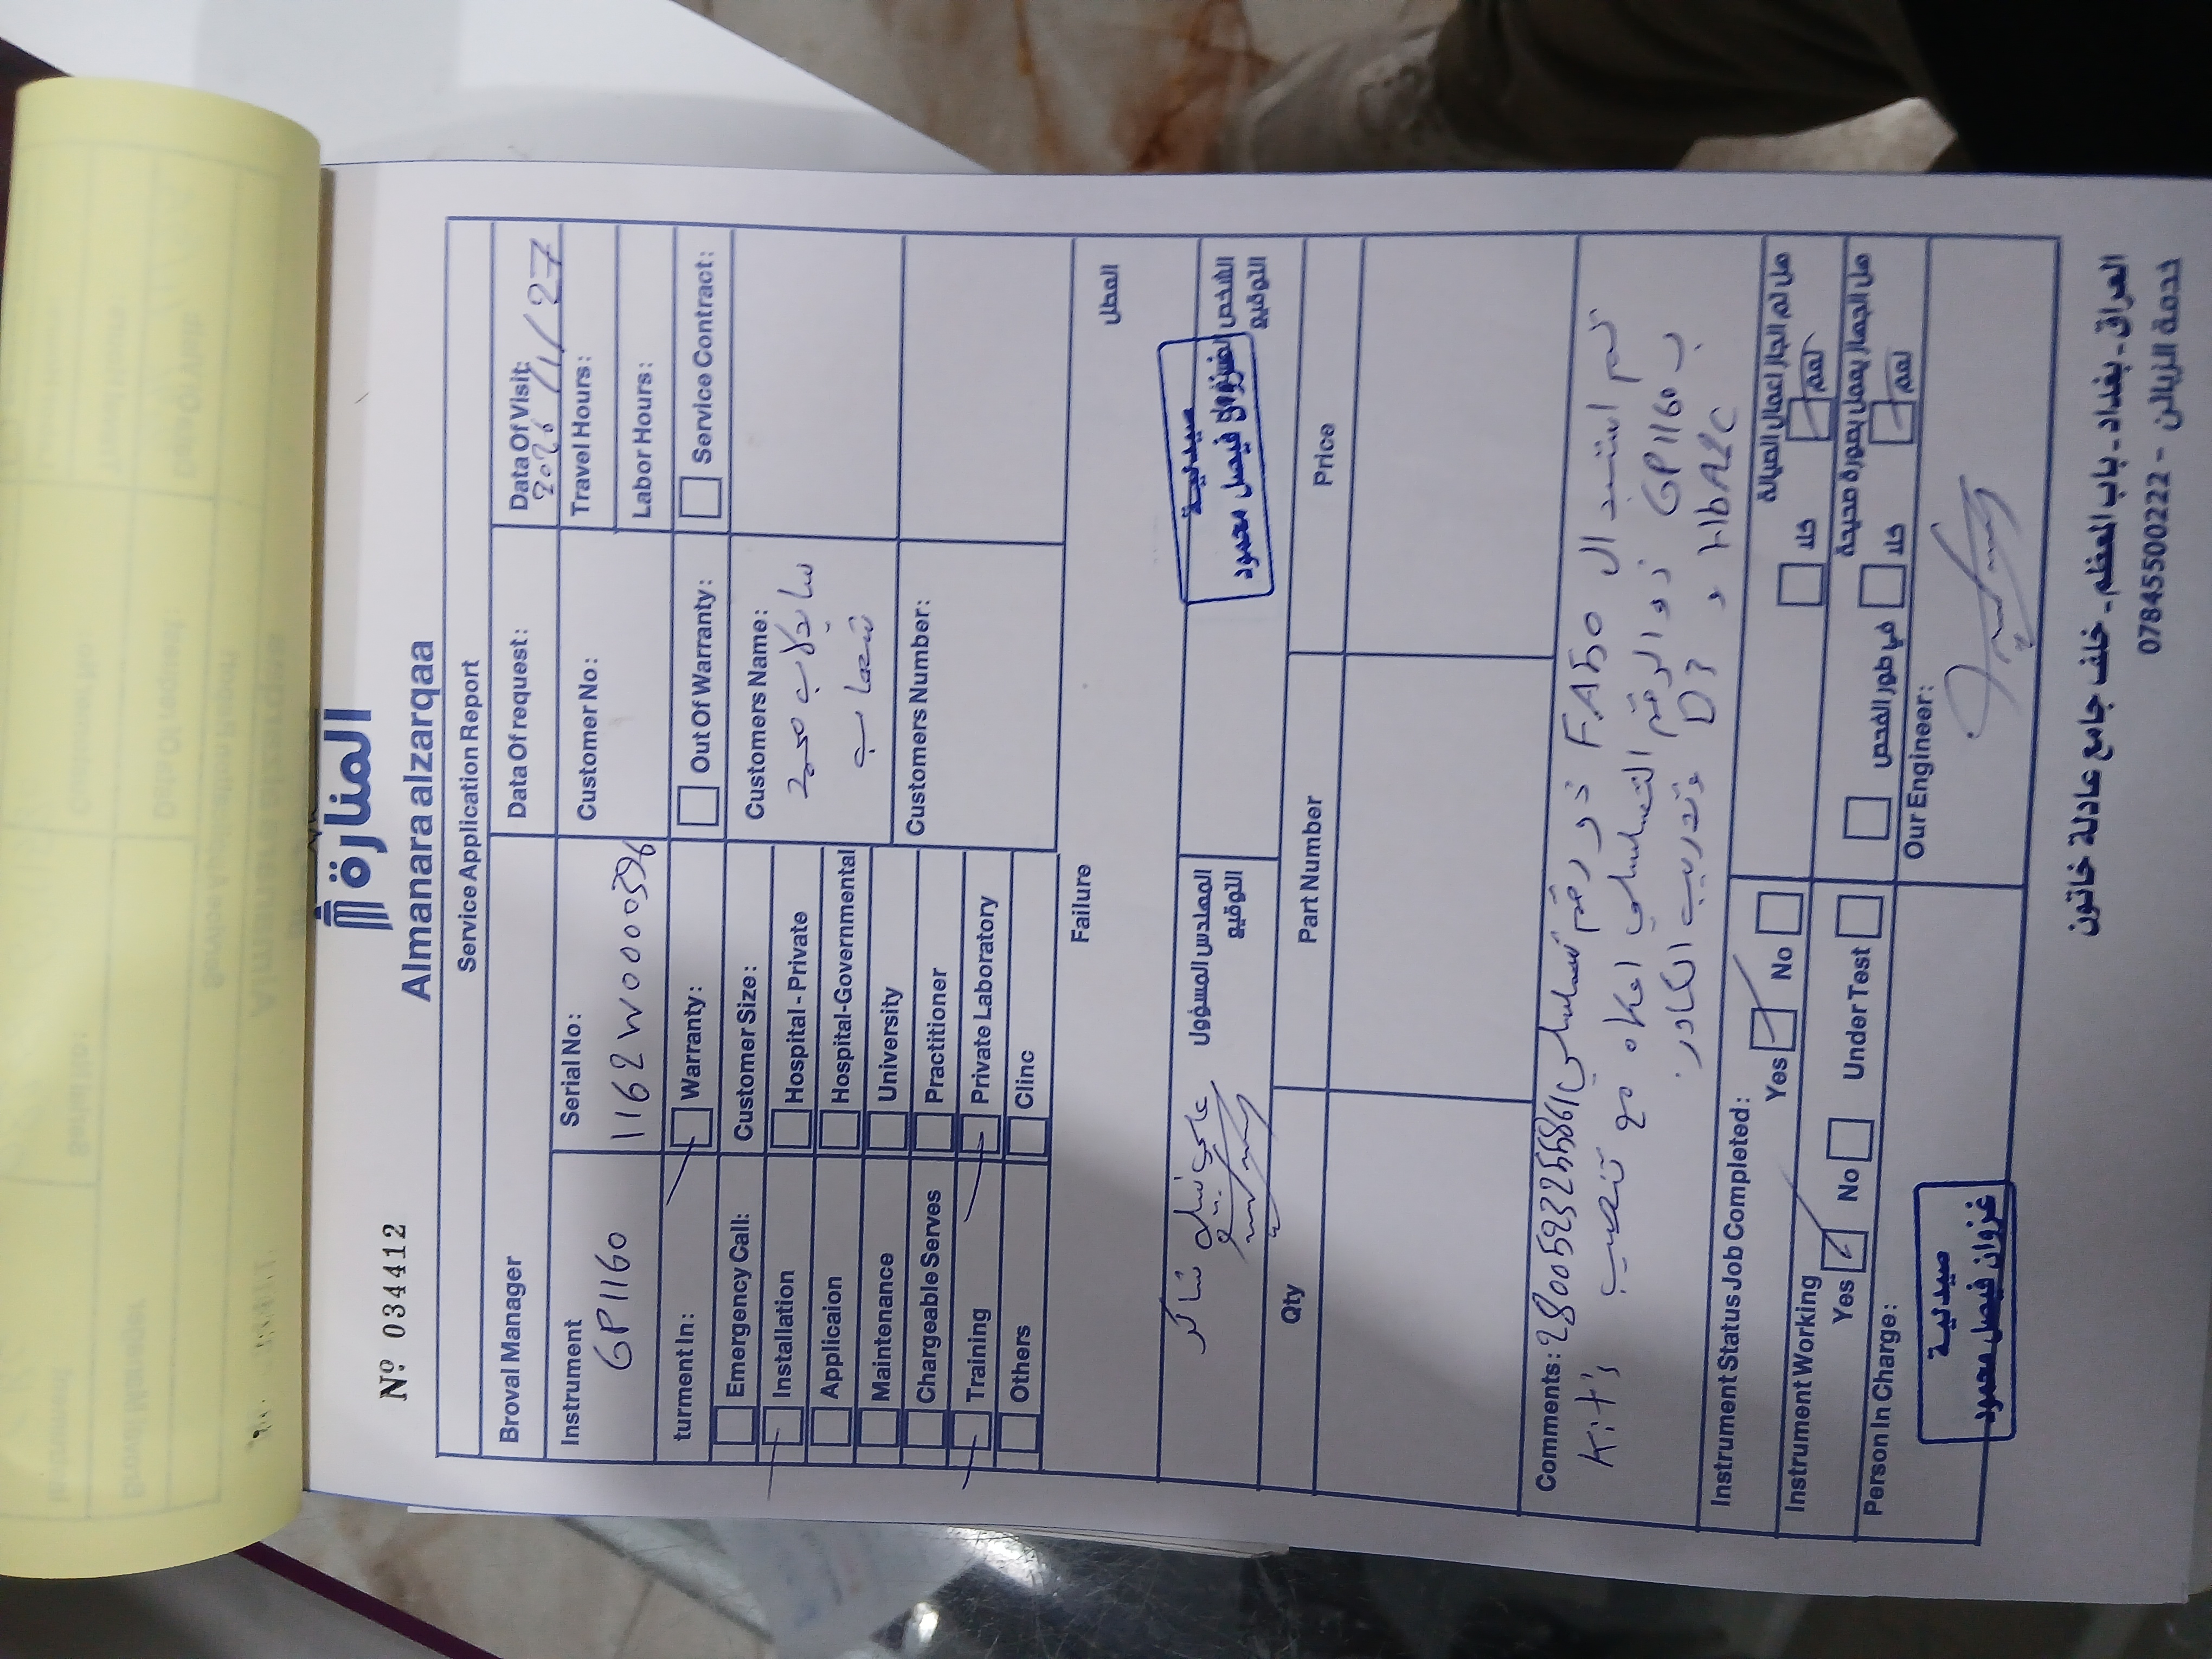 المنارة
Nº 034412
Almanara alzarqaa
Service Application Report
Broval Manager
Data Of request:
Data Of Visit:
2026/1/27
Instrument
GP1160
Serial No:
1162W0000396
Customer No:
Travel Hours:
Labor Hours:
turment In:
Warranty:
Out Of Warranty:
Service Contract:
Emergency Call:
Customer Size:
Customers Name:
Installation
Hospital - Private
Applicaion
Hospital-Governmental
Maintenance
University
Chargeable Serves
Practitioner
Customers Number:
Training
Private Laboratory
Others
Clinc
Failure
العطل
علي شاكر
المهندس المسؤول
التوقيع
صيدلية
غزوان فيصل محمود
الشخص
التوقيع
Qty
Part Number
Price
Comments: 2800592325586191 تم استبدال FA50 ذو رقم تسلسلي
ب GP1160 ذو الرقم التسلسلي اعلاه مع تنصيب Kit's
HbA1c و D3 وتدريب الكادر.
Instrument Status Job Completed:
Yes
No
هل تم انجاز اعمال الصيانة
كلا
نعم
Instrument Working
Yes
No
Under Test
هل الجهاز يعمل بصورة صحيحة
في طور الفحص
كلا
نعم
Person In Charge:
صيدلية
غزوان فيصل محمود
Our Engineer:
العراق - بغداد - باب المعظم - خلف جامع عادلة خاتون
خدمة الزبائن - 07845500222